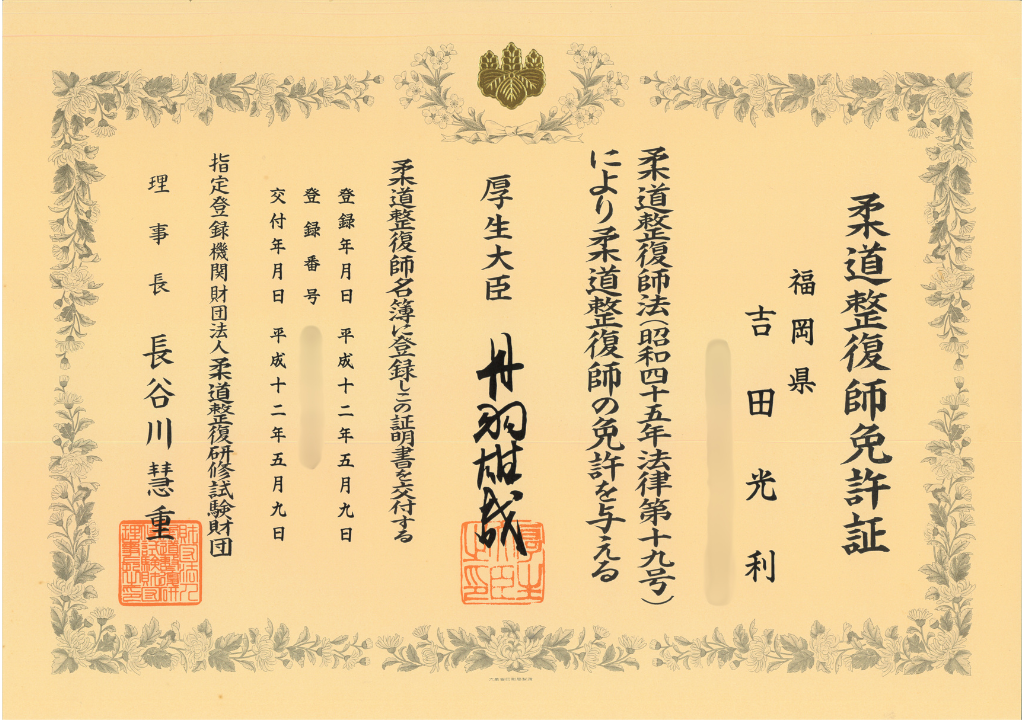 柔道整復師免許証
福岡県
吉田光利
柔道整復師法（昭和四十五年法律第十九号）
により柔道整復師の免許を与える
厚生大臣 丹羽雄哉
柔道整復師名簿に登録しこの証明書を交付する
登録年月日 平成十二年五月九日
登録番号
交付年月日 平成十二年五月九日
指定登録機関財団法人柔道整復研修試験財団
理事長 長谷川慧重